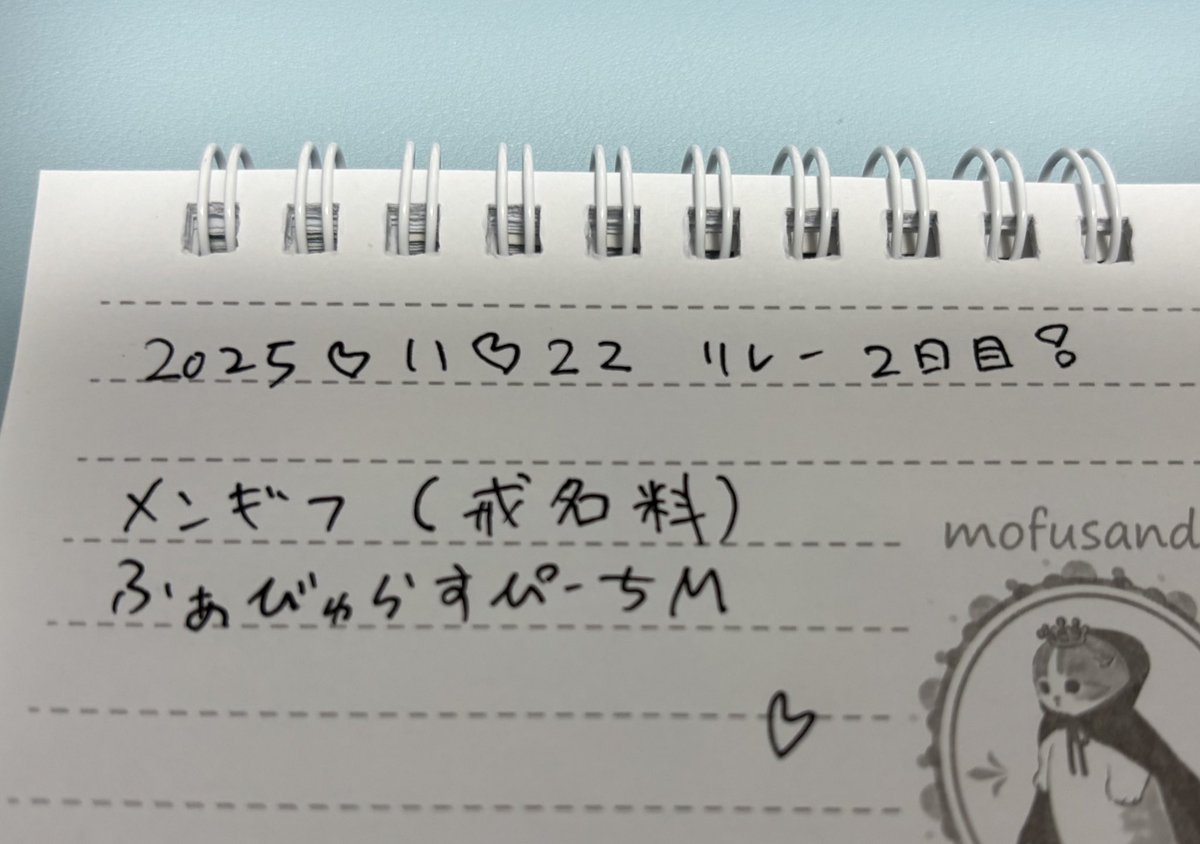 2025♡11♡22 リレー 2日目!
メンギフ(戒名料)
ふぁびゃらすぴーちM
♡
mofusand